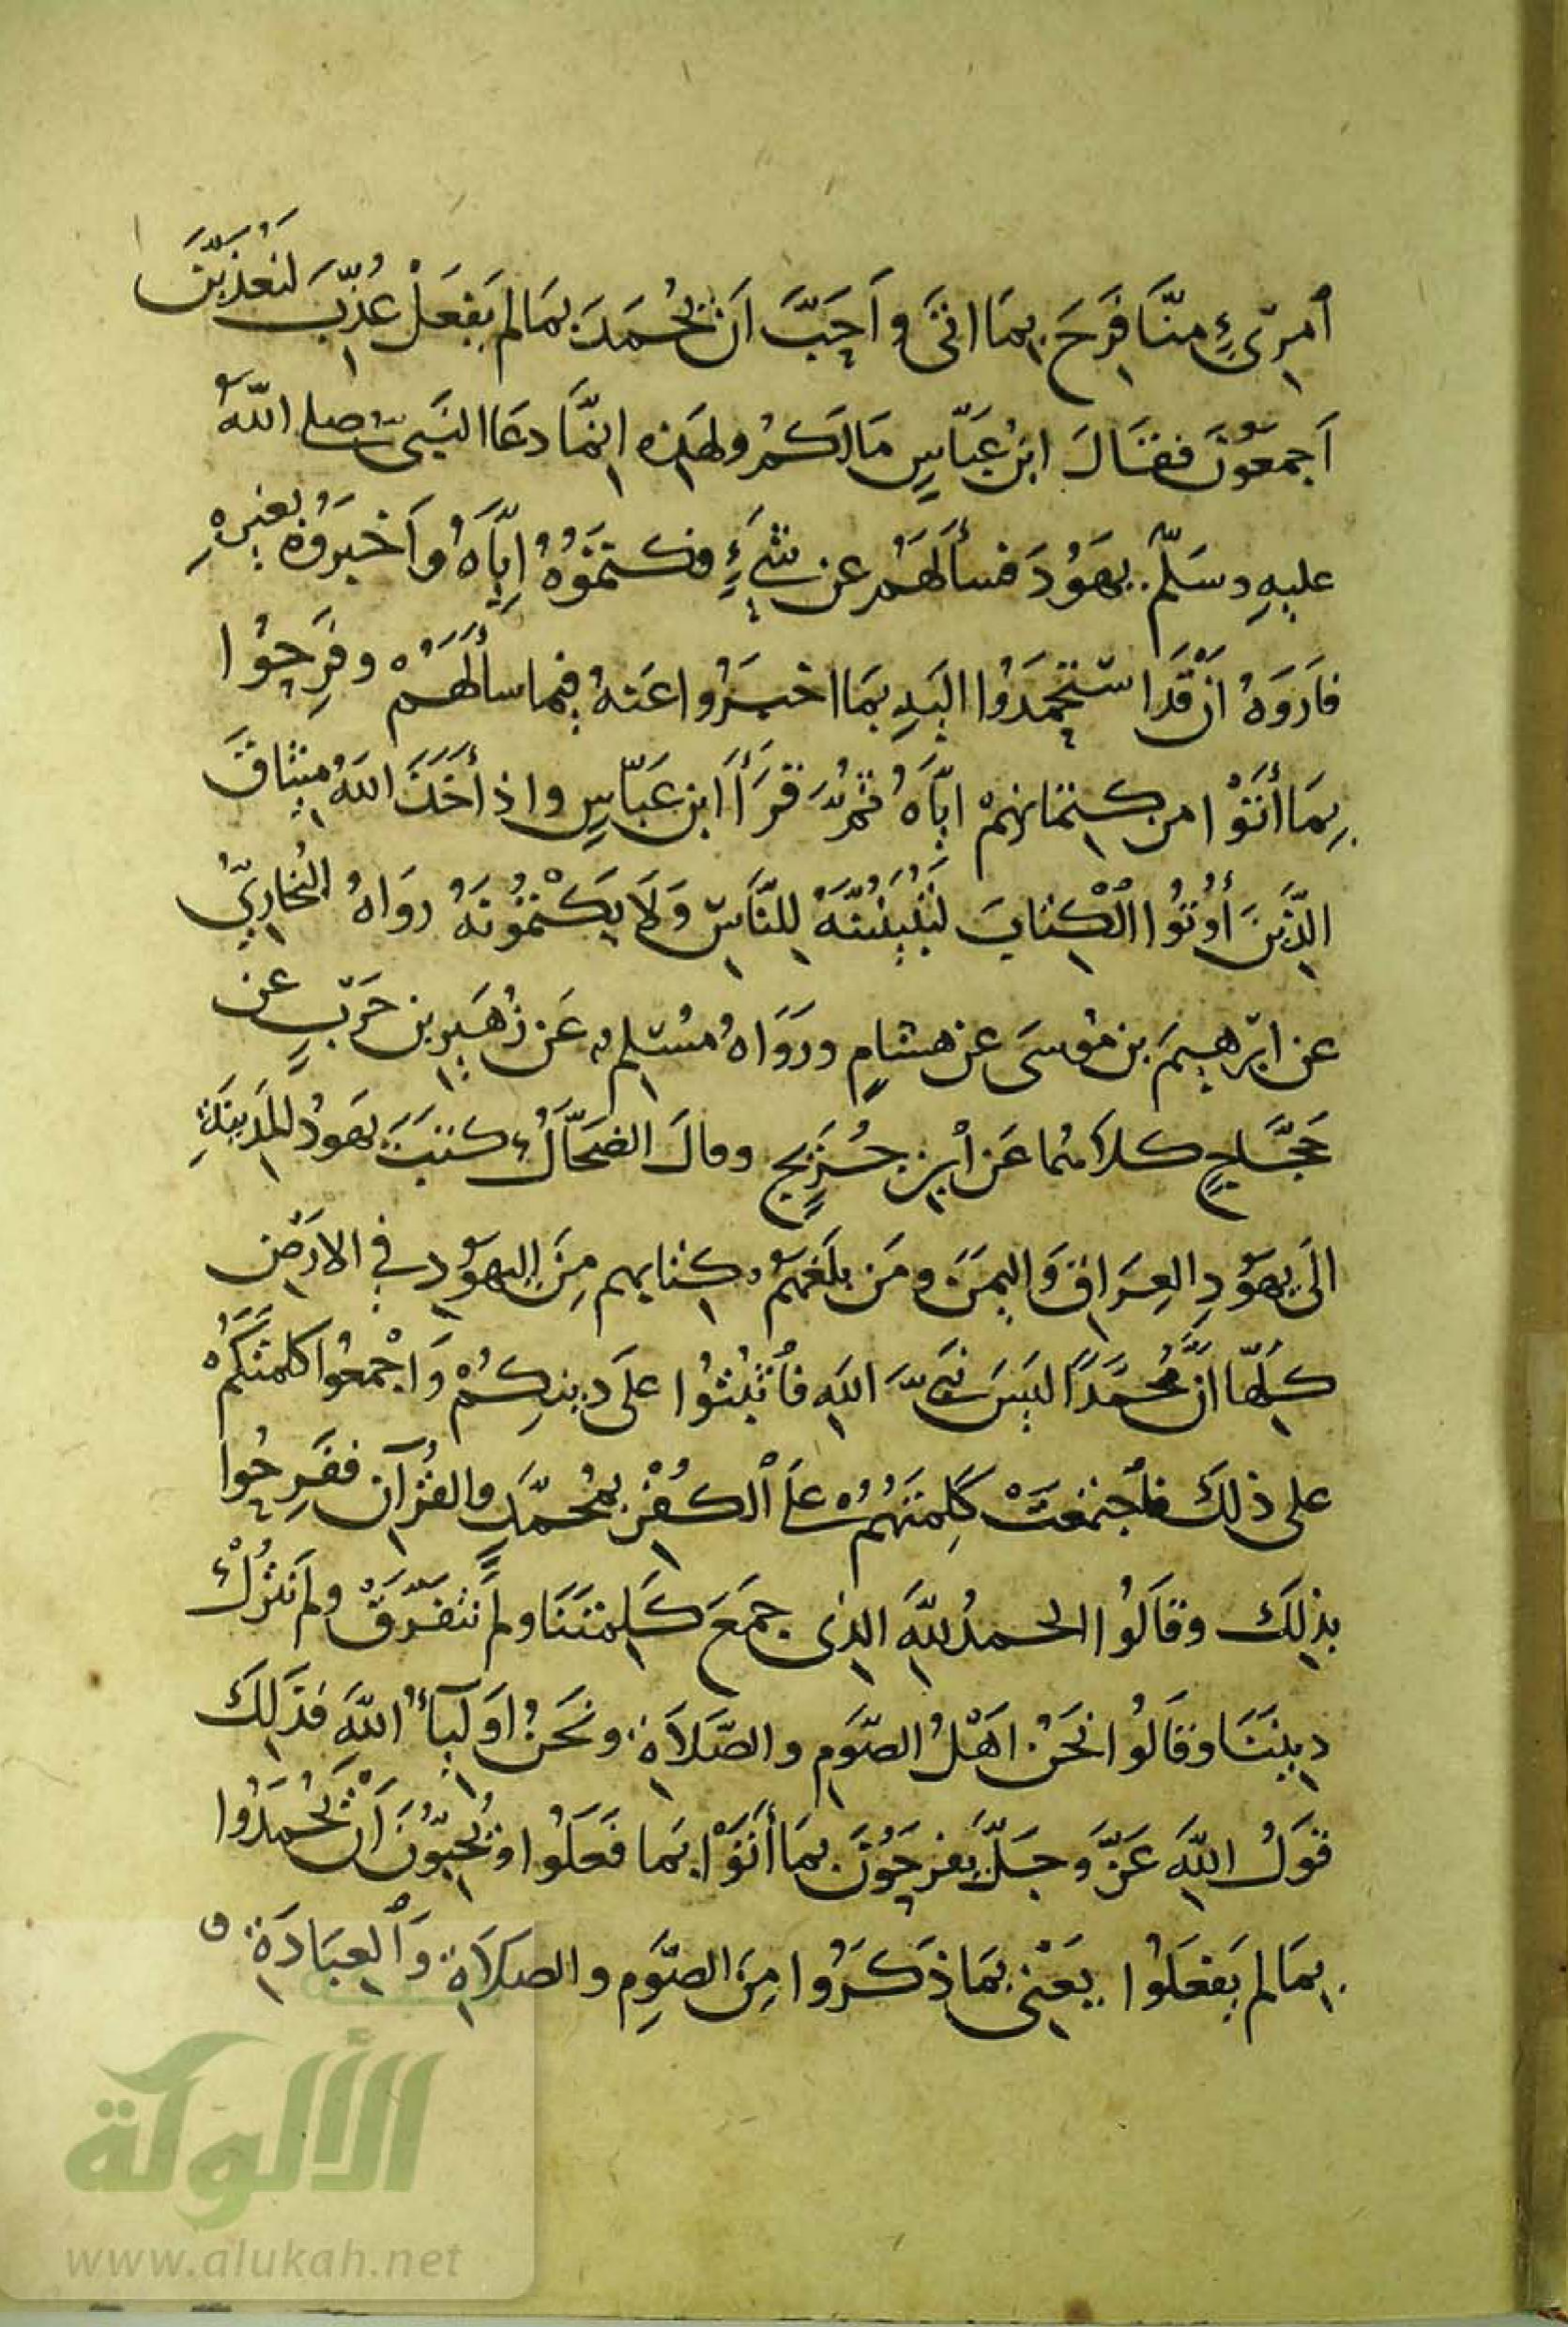 ٱمرِىءٍ مِنَّا فَرِحَ بِمَا اتَى وَاَحَبَّ اَنْ يُحْمَدَ بِمَا لَمْ يَفْعَلْ عُذِّبَ لَنُعَذَّبَنَّ
اَجمَعُونَ فَقَالَ ابنُ عَبَّاسٍ مَا لَكُمْ ولهَذِه اِنَّمَا دَعَا النَبِىُّ صلى اللهُ
عليهِ وسَلَّم يهُودَ فسأَلَهُمْ عن شَىءٍ فكتمُوهُ اِيَّاهُ وَاَخبَرُوْهُ بغيرِهِ
فاَرَوهُ ان قَد استَحمَدُوا اليهِ بِمَا اخبَرُوا عَنهُ فيما سأَلَهُمْ وفَرِحُوا
بِمَا أَتَوْا من كِتمَانِهِمْ ايَّاهُ ثُمَّ قَرَأَ ابن عَبَّاسٍ واذ أَخَذَ اللهُ مِيثَاقَ
الَّذِينَ أُوتُوا الْكِتَابَ لَيُبَيِّنُنَّهُ لِلنَّاسِ وَلَا يَكْتُمُونَهُ رَوَاهُ البُخَارِيُّ
عن ابرٰهِيمَ بن مُوسَى عن هشامٍ ورَوَاهُ مُسْلِم عَن زُهَيرِ بن حَربٍ عن
حَجَّاجٍ كلاهُما عَن ابنِ جُرَيجٍ وقالَ الضحَّاكُ كتبَتْ يَهودُ المَدِينَةِ
الَى يهُودِ العِرَاقِ وَاليمَنِ ومَن بلَغَهُمْ كِتابهم مِنَ اليهُودِ في الارضِ
كلِّهَا انَّ مُحمَّدًا لَيسَ نَبىَّ اللهِ فاثبُتُوا علَى دينِكُمْ وَاَجْمِعُوا كلمتَكُمْ
على ذلكَ فاجتمَعَتْ كَلِمَتُهُمْ علَى ٱلكُفْرِ بمُحمَّدٍ والقُرآنِ ففَرِحُوا
بذٰلِكَ وقَالُوا الحمدُ لِلّٰهِ الذِى جمَعَ كَلِمَتَنَا ولَم نَتَفَرَّقْ ولَم نَترُكْ
دِينَنَا وقَالُوا نَحنُ اَهْلُ الصَّومِ والصَّلاَةِ ونَحنُ اَوليَآءُ اللهِ فَذلِكَ
قَولُ اللهِ عَزَّ وجَلَّ يَفرَحُونَ بِمَا أَتَوْا بِمَا فَعَلُوا وَيُحِبُّونَ اَنْ يُحْمَدُوا
بِمَا لم يَفعَلُوا يَعْنِى بِمَا ذَكَرُوا مِنَ الصَّومِ والصَّلَاةِ وَٱلعِبَادَةِ
الألوكة
www.alukah.net